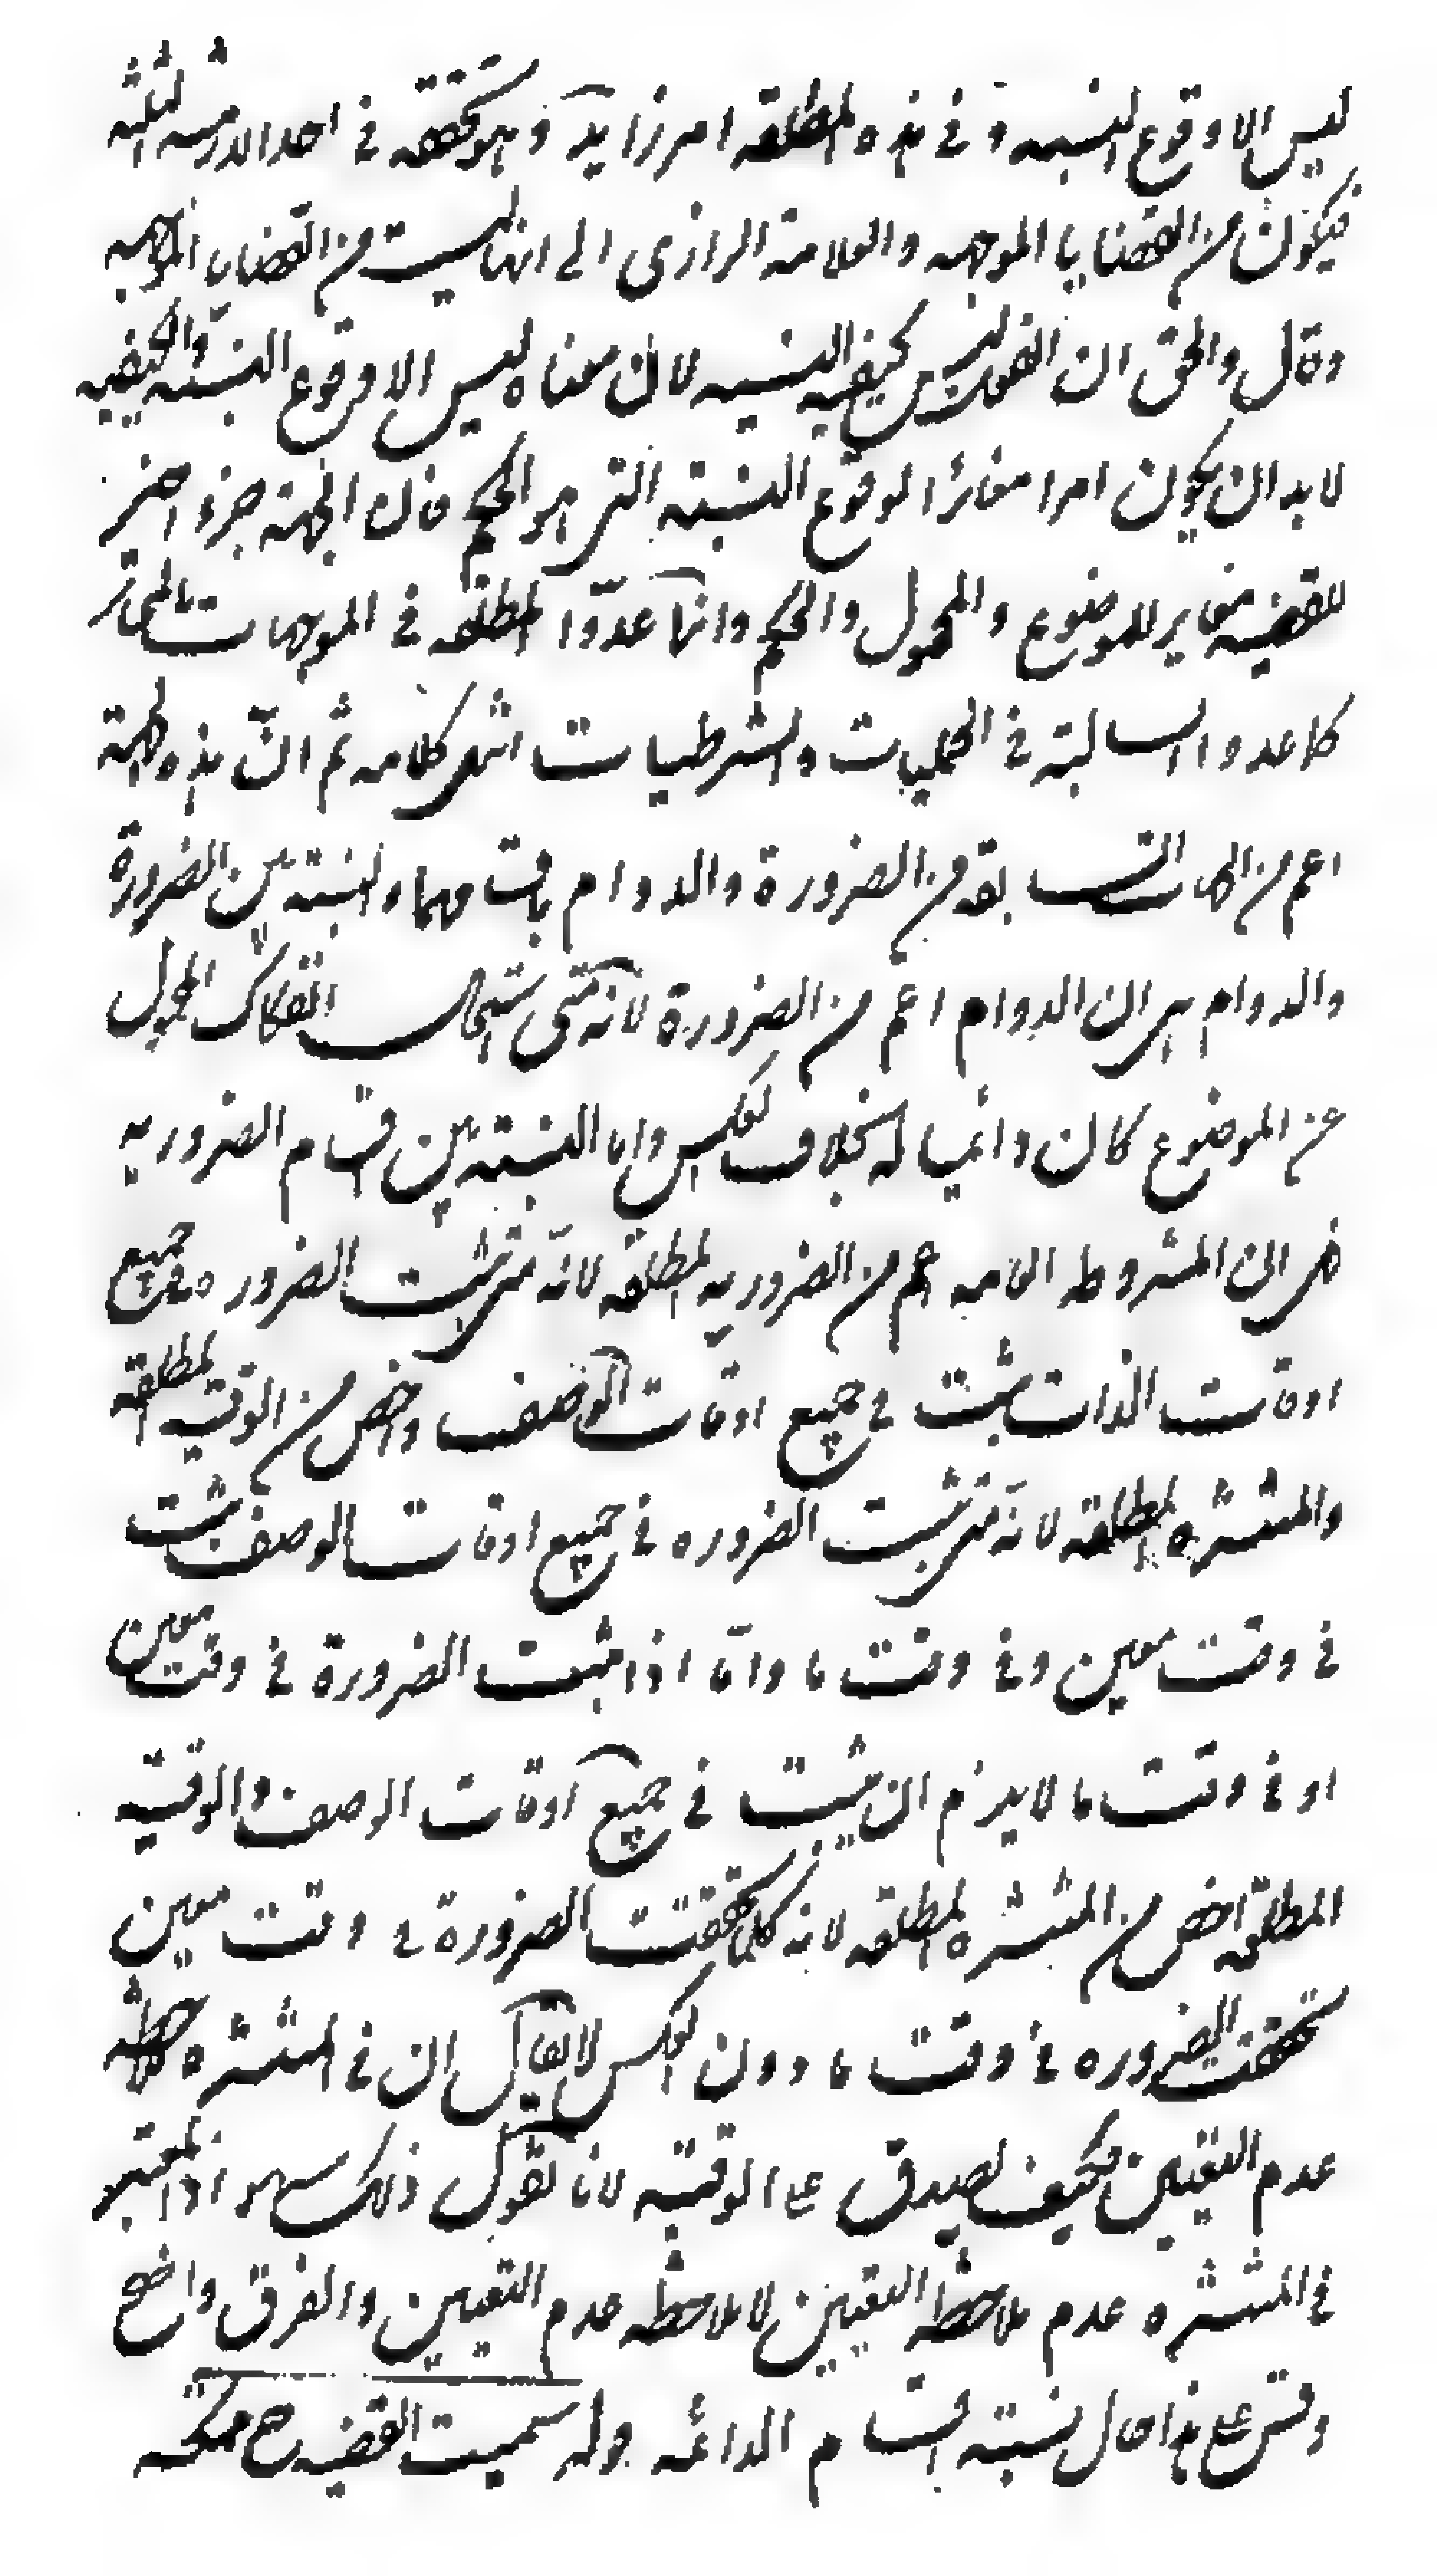 ليس الا وقوع النسبه و في هذه المطلقه امر زايد و هو تحققه في احد الازمنه الثلثه
فيكون من القضايا الموجهه والعلامة الرازى الى انها ليست من القضايا الموجهه
وقال والحق ان الفعل ليس كيفيه النسبه لان معناه ليس الا وقوع النسبته والكيفيه
لا بد ان يكون امرا مغائرا لوقوع النسبته التى هو الحكم فان الجهة جزء اخر
للقضيه مغاير للموضوع والمحمول والحكم وانما عدّوا المطلقه في الموجهات بالمجاز
كما عدوا السالبة في الحمليات والشرطيات انتهى كلامه ثم انّ هذه الجهة
اعم من الجهات السابقة من الضرورة والدوام باقسامهما والنسبته بين الضرورة
والدوام هى ان الدوام اعم من الضرورة لانه متى استحال انفكاك المحمول
عن الموضوع كان دائميا له بخلاف العكس واما النسبته بين اقسام الضروريه
فهى ان المشروط العامه اعم من الضروريه المطلقه لانه متى ثبت الضروره في جميع
اوقات الذات ثبت في جميع اوقات الوصف واخص من الوقتيه المطلقه
والمنتشره المطلقه لانه متى ثبت الضروره في جميع اوقات الوصف ثبت
في وقت معين وفي وقت ما واما اذا ثبت الضرورة في وقت معين
او في وقت ما لا يلزم ان يثبت في جميع اوقات الوصف والوقتيه
المطلقه اخص من المنتشره المطلقه لانه كلما تحققت الضرورة في وقت معين
تحققت الضروره في وقت ما دون العكس لا يقال ان في المنتشره ملاحظه
عدم التعيين فكيف يصدق على الوقتيه لانا نقول ذلك سهو اذ المعتبر
في المنتشره عدم ملاحظه التعيين لا ملاحظه عدم التعيين والفرق واضح
وقس على هذا حال نسبته اقسام الدائمه قوله سميت القضيه ح ممكنه